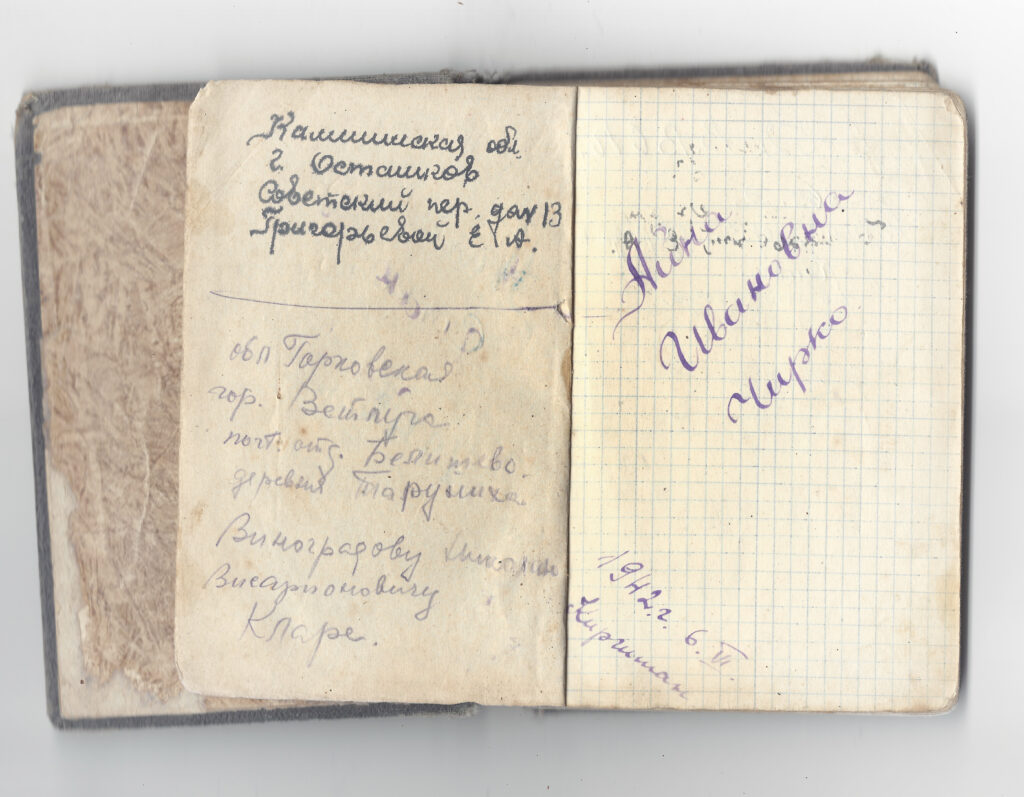 Калининская обл.
г. Осташков
Советский пер. дом 13
Григорьевой Е. А.
обл Горковская
гор. Ветлуга
почт. отд. Белышево.
деревня Тарушиха
Виноградову
Висарионовичу
Кларе.
Нина
Ивановна
Чирко
1942 г. 6. VI.